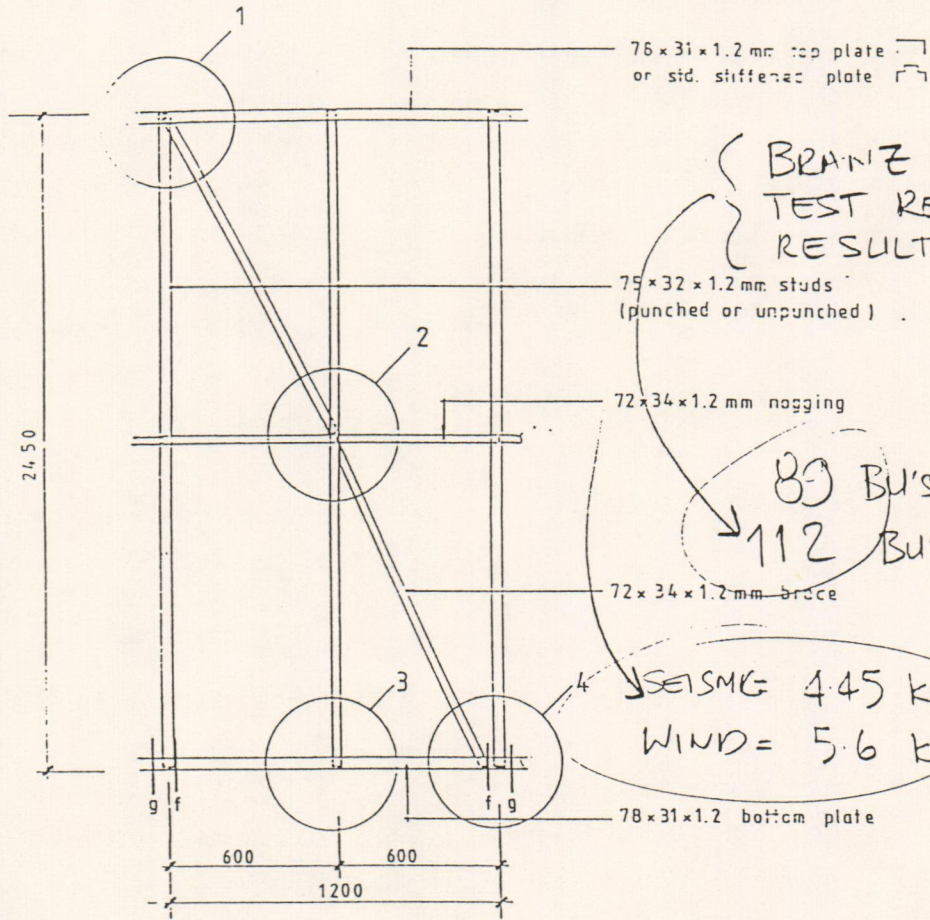 1
76 × 31 × 1.2 mm top plate
or std. stiffened plate
BRANZ
TEST RE
RESULT
75 × 32 × 1.2 mm studs
(punched or unpunched)
2
72 × 34 × 1.2 mm nogging
2450
89 BU'S
112 BU'
72 × 34 × 1.2 mm brace
3
4
SEISMIC 4.45 K
WIND = 5.6 K
g f
f g
78 × 31 × 1.2 bottom plate
600
600
1200